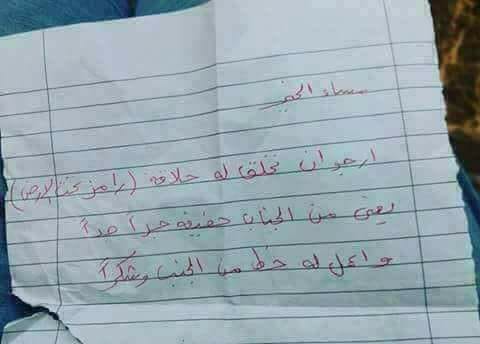 مساء الخير
ارجو ان تحلق له حلاقة (رامز تحت الارض)
يعني من الجناب خفيفه جداً جداً
واعمل له خط من الجنب وشكراً